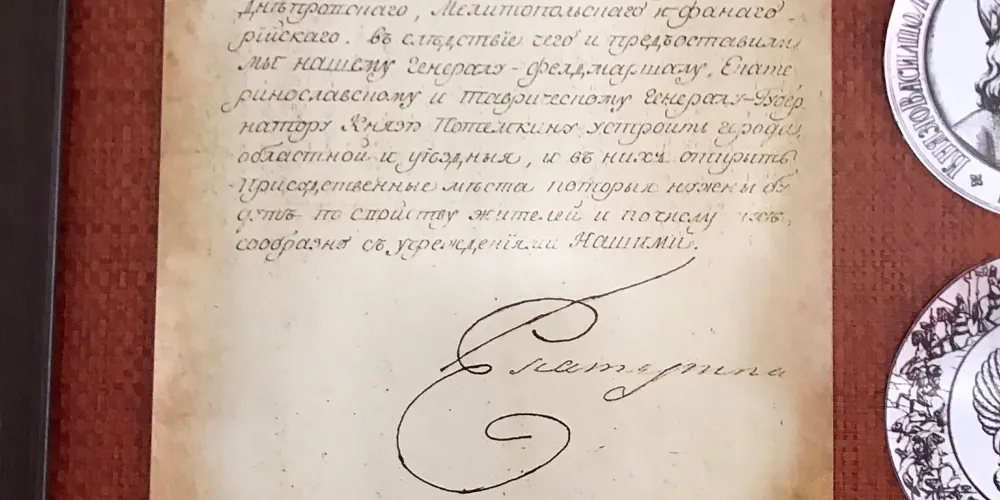 Днѣпровскаго, Мелитопольскаго и Фанаго
рійскаго. въ слѣдствіе чего и предъоставили
мы нашему Генералу-фелдмаршалу, Екате
ринославскому и Таврическому Генералу-Губер
натору Князю Потемкину устроить города,
областной и уѣздныя, и въ нихъ открыть
Присудственные мѣста которыя нужны бу
дутъ по свойству жителей и по числу ихъ,
сообразно съ учрежденіями Нашими.
Екатерина
КНЯЗЮ ВАСИЛИЮ